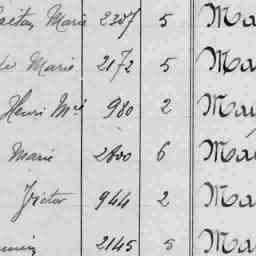 Gaëtan Marie 2207 5 Ma
de Marie 2172 5 Ma
Henri Mie 980 2 Ma
Marie 2600 6 Ma
Victor 944 2 Ma
2145 5 Ma